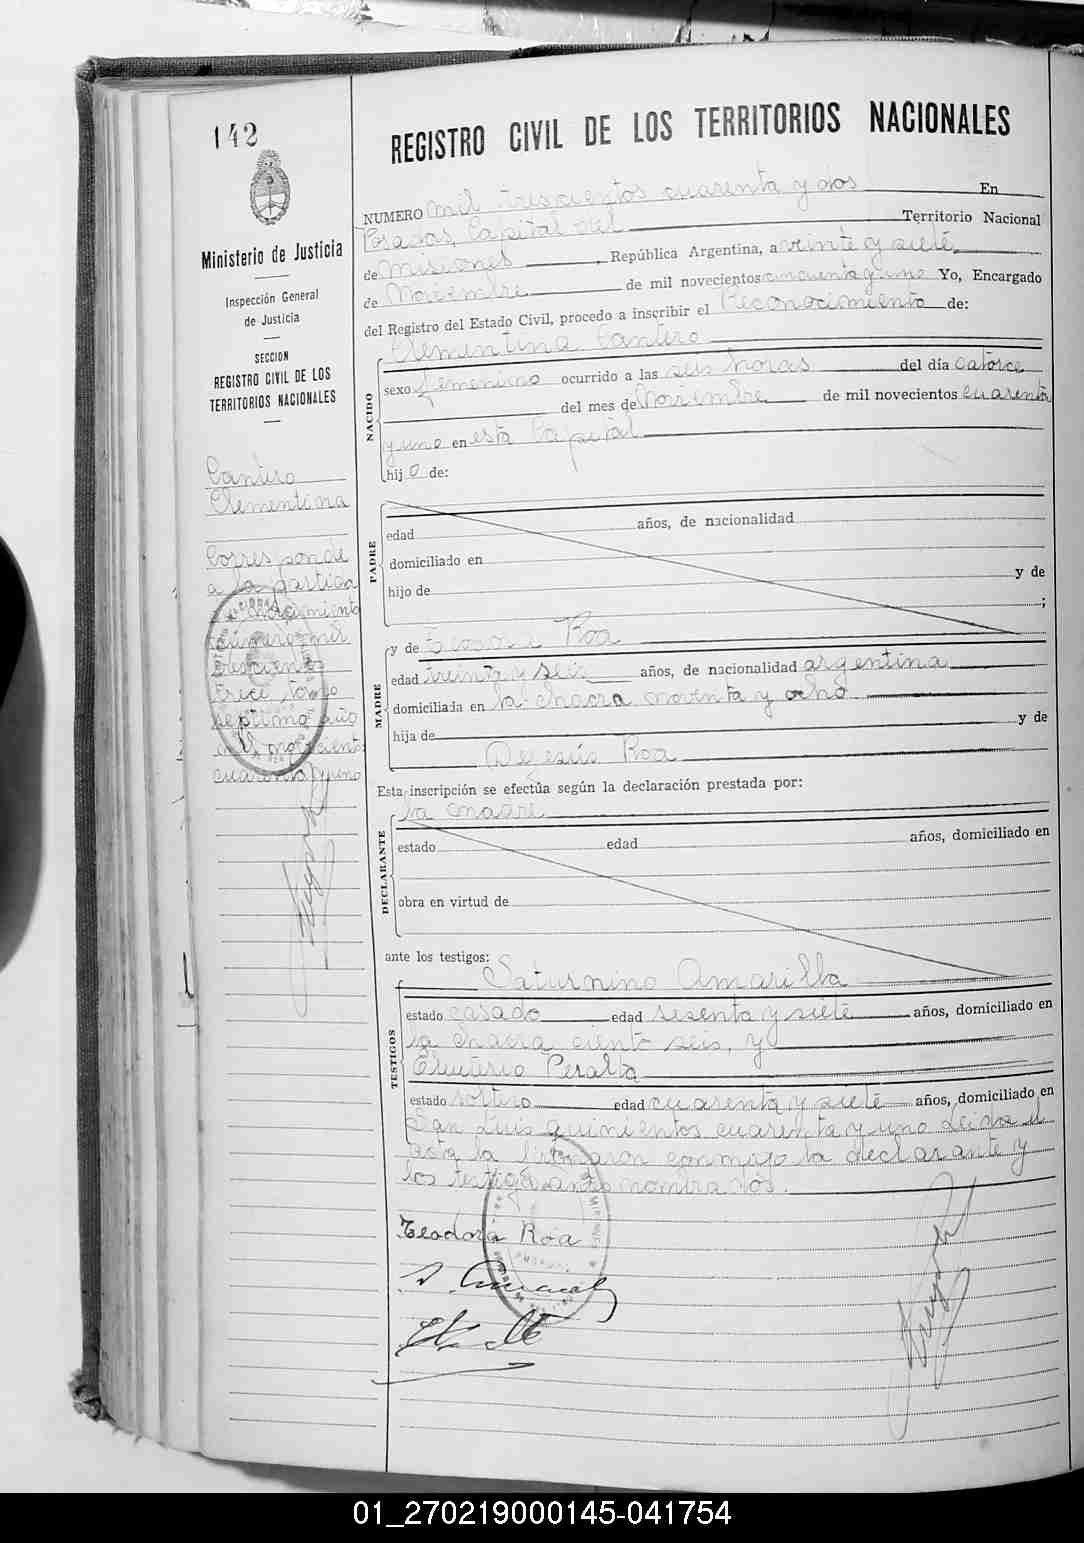 142
Ministerio de Justicia
Inspección General
de Justicia
SECCION
REGISTRO CIVIL DE LOS
TERRITORIOS NACIONALES
Cantero
Clementina
Corresponde
a la partida
de nacimiento
número mil
trescientos
trece tomo
septimo año
mil novecientos
cuarenta y uno
REGISTRO CIVIL DE LOS TERRITORIOS NACIONALES
NUMERO mil trescientos cuarenta y dos En
Posadas, Capital del Territorio Nacional
de Misiones, República Argentina, a veinte y siete,
de Noviembre de mil novecientos cincuenta y uno Yo, Encargado
del Registro del Estado Civil, procedo a inscribir el Reconocimiento de:
Clementina Cantero
NACIDO
sexo femenino ocurrido a las seis horas del día catorce
del mes de Noviembre de mil novecientos cuarenta
y uno en esta Capital
hijo de:
PADRE
edad años, de nacionalidad
domiciliado en
hijo de y de
;
MADRE
y de Teodora Roa
edad treinta y seis años, de nacionalidad argentina
domiciliada en la chacra noventa y ocho
hija de y de
Dejesús Roa
Esta inscripción se efectúa según la declaración prestada por:
la madre
DECLARANTE
estado edad años, domiciliado en
obra en virtud de
ante los testigos:
Saturnino Amarilla
TESTIGOS
estado casado edad sesenta y siete años, domiciliado en
la chacra ciento seis, y
Eleuterio Peralta
estado soltero edad cuarenta y siete años, domiciliado en
San Luis quinientos cuarenta y uno Leida el
acta la firmaron conmigo la declarante y
los testigos antes nombrados.
Teodora Roa
01_270219000145-041754